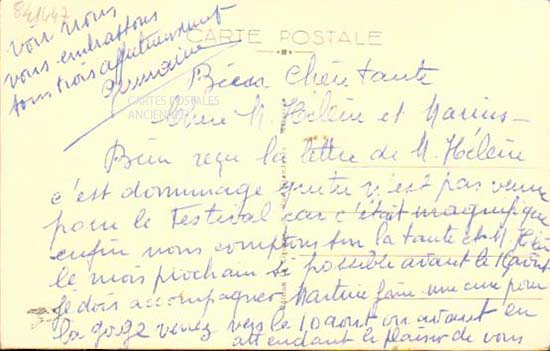 841447
CARTE POSTALE
CARTES POSTALES
ANCIENNES
Bien Chère tante
Chère M. Hélène et Marius -
Bien reçu la lettre de M. Hélène
c'est dommage qu'elle n'est pas venue
pour le Festival car c'était magnifique
enfin nous comptons sur la tante et M. Hélène
le mois prochain si possible avant le 18 août
je dois accompagner Martine faire une cure pour
la gorge venez vers le 10 août ou avant en
attendant le plaisir de vous
voir nous
vous embrassons
tous trois affectueusement
Germaine